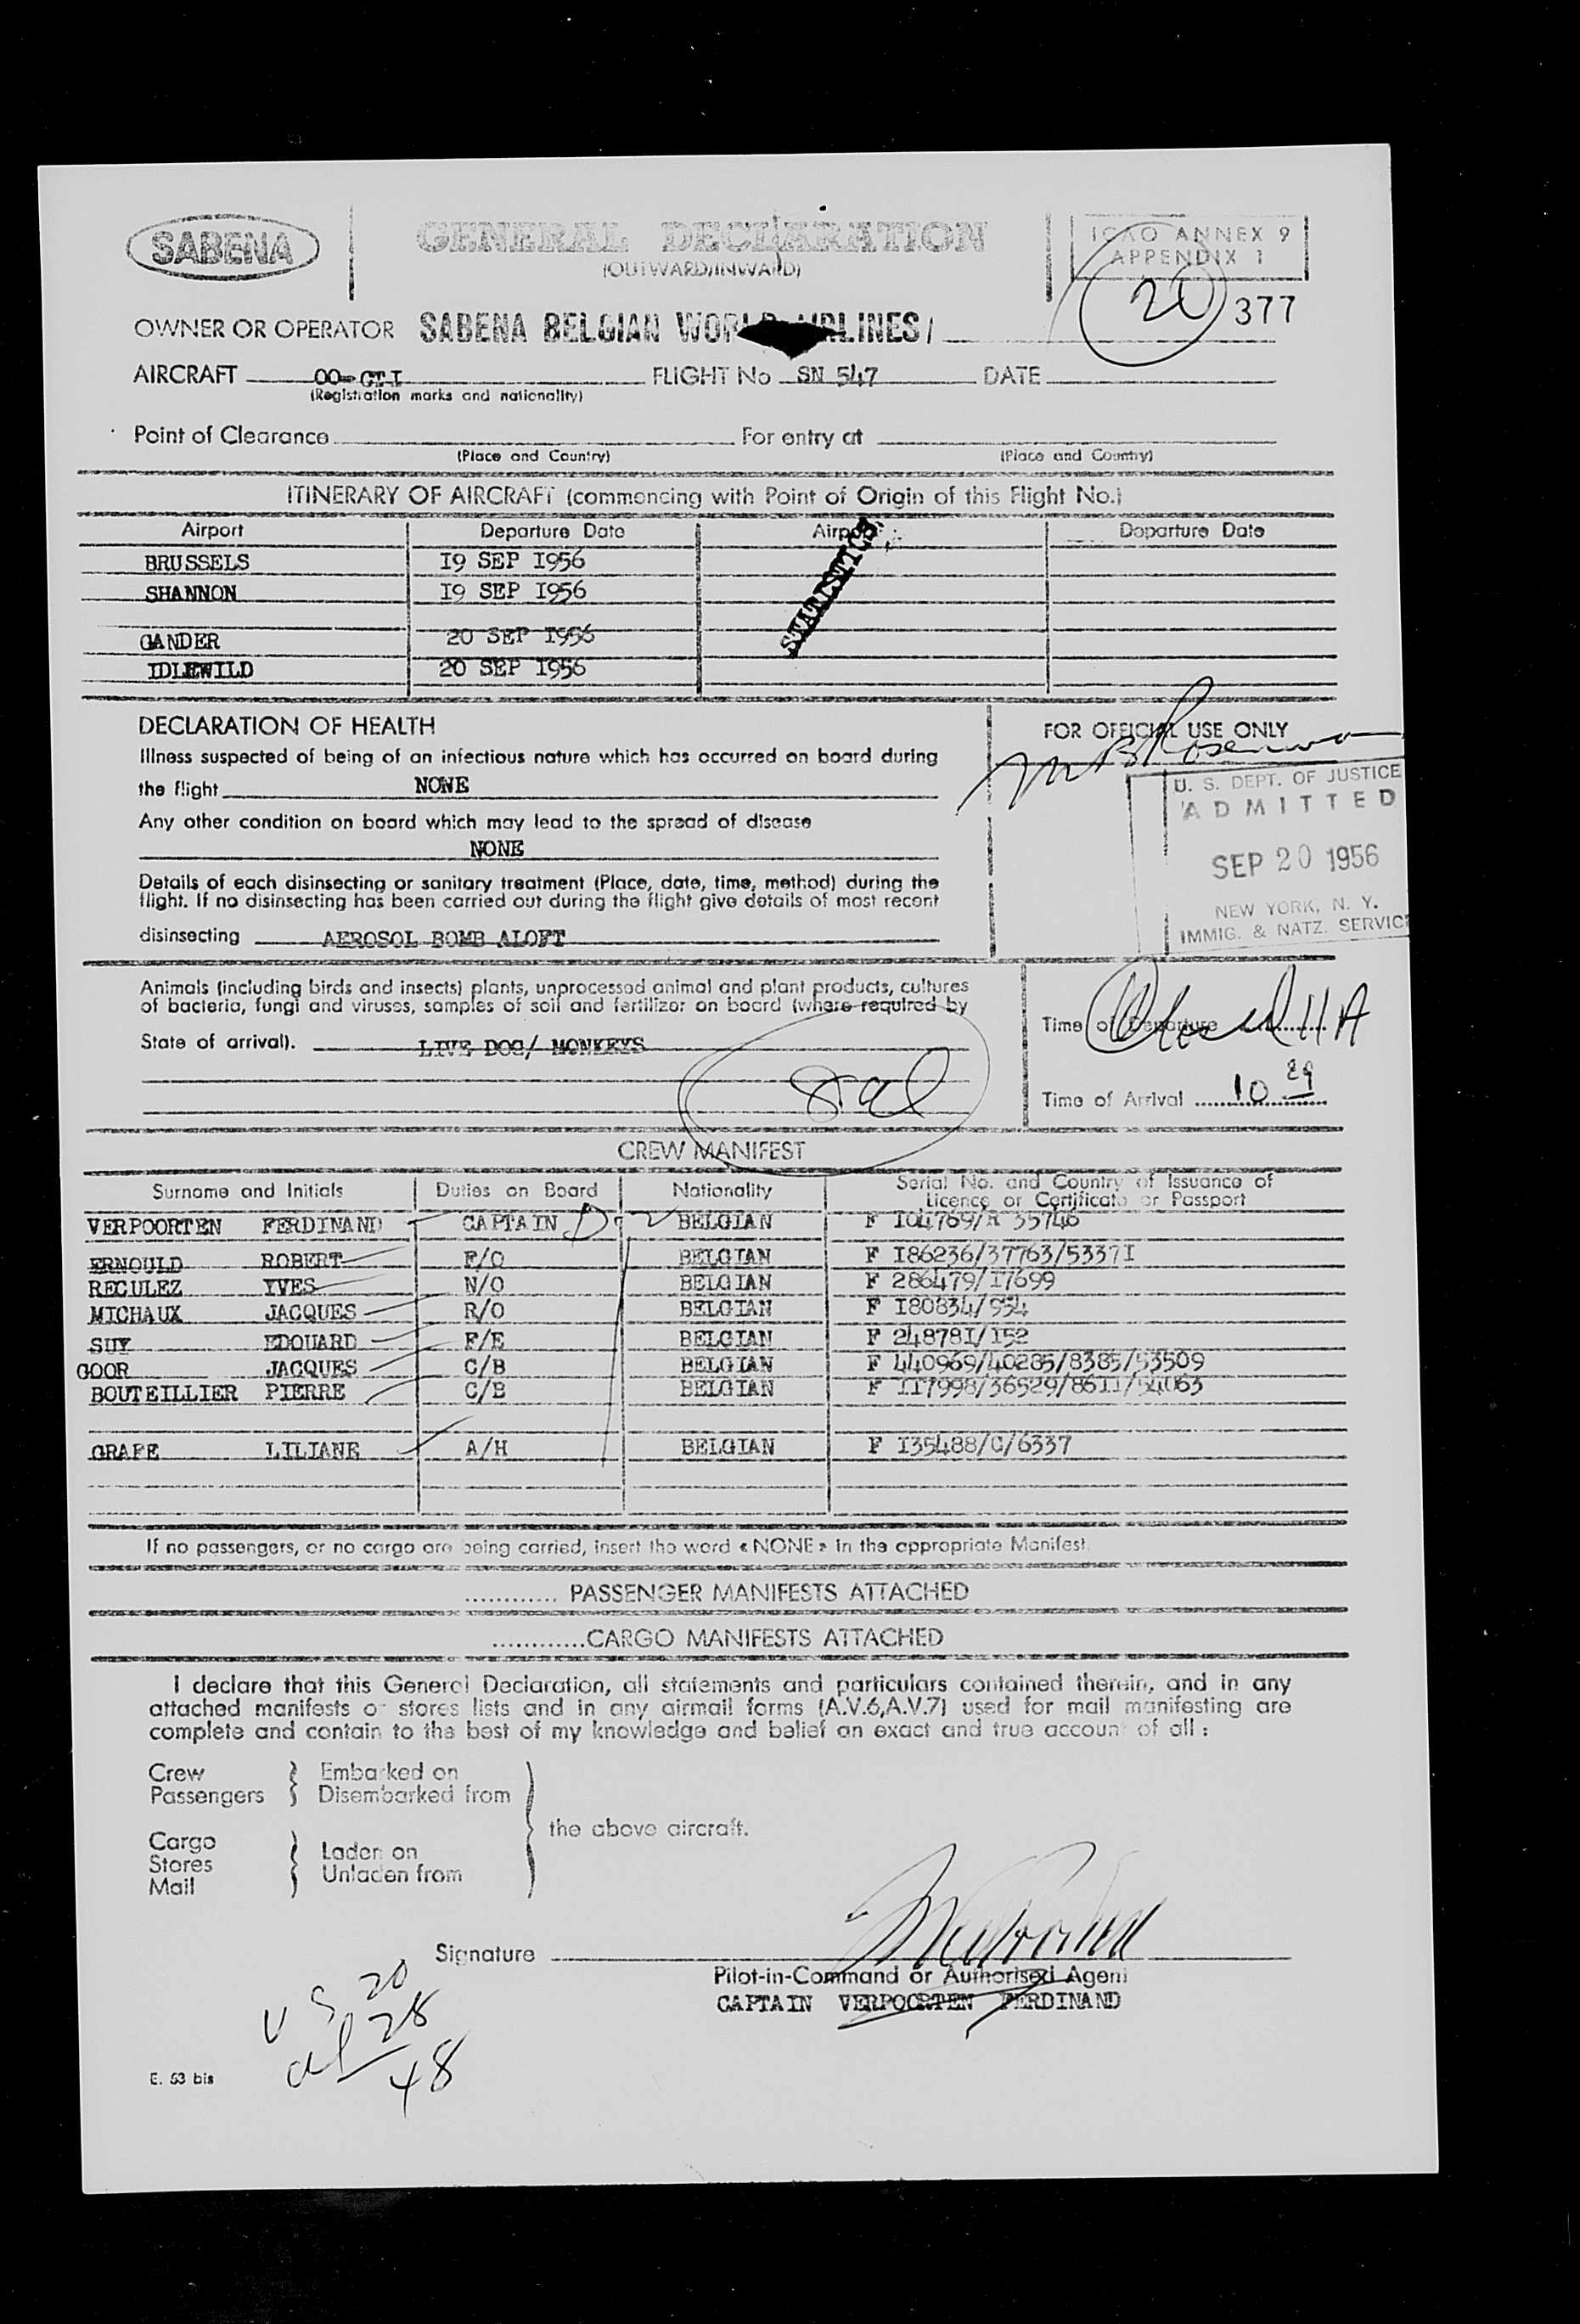 SABENA
GENERAL DECLARATION
(OUTWARD/INWARD)
ICAO ANNEX 9
APPENDIX 1
20 377
OWNER OR OPERATOR SABENA BELGIAN WORLD AIRLINES/
AIRCRAFT OO-CTI FLIGHT No SN 547 DATE
(Registration marks and nationality)
Point of Clearance For entry at
(Place and Country) (Place and Country)
ITINERARY OF AIRCRAFT (commencing with Point of Origin of this Flight No.)
Airport Departure Date Airport Departure Date
BRUSSELS I9 SEP I956
SHANNON I9 SEP I956
GANDER 20 SEP I956
IDLEWILD 20 SEP I956
STATISTICS
DECLARATION OF HEALTH
Illness suspected of being of an infectious nature which has occurred on board during
the flight NONE
Any other condition on board which may lead to the spread of disease
NONE
Details of each disinsecting or sanitary treatment (Place, date, time, method) during the
flight. If no disinsecting has been carried out during the flight give details of most recent
disinsecting AEROSOL BOMB ALOFT
FOR OFFICIAL USE ONLY
U. S. DEPT. OF JUSTICE
ADMITTED
SEP 20 1956
NEW YORK, N. Y.
IMMIG. & NATZ. SERVIC
Animals (including birds and insects) plants, unprocessed animal and plant products, cultures
of bacteria, fungi and viruses, samples of soil and fertilizer on board (where required by
State of arrival). LIVE DOG/ MONKEYS
Time of Departure
Time of Arrival 10 29
CREW MANIFEST
Surname and Initials Duties on Board Nationality Serial No. and Country of Issuance of
Licence or Certificate or Passport
VERPOORTEN FERDINAND CAPTAIN BELGIAN F I04769/R 35746
ERNOULD ROBERT F/O BELGIAN F I86236/37763/5337I
RECULEZ YVES N/O BELGIAN F 286479/I7699
MICHAUX JACQUES R/O BELGIAN F I80834/954
SUY EDOUARD F/E BELGIAN F 24878I/I52
GOOR JACQUES C/B BELGIAN F 440969/40285/8385/53509
BOUTEILLIER PIERRE C/B BELGIAN F II7998/36529/86II/54063
GRAFE LILIANE A/H BELGIAN F I35488/C/6337
If no passengers, or no cargo are being carried, insert the word « NONE » in the appropriate Manifest.
............. PASSENGER MANIFESTS ATTACHED
.............CARGO MANIFESTS ATTACHED
I declare that this General Declaration, all statements and particulars contained therein, and in any
attached manifests or stores lists and in any airmail forms (A.V.6,A.V.7) used for mail manifesting are
complete and contain to the best of my knowledge and belief an exact and true account of all :
Crew Embarked on
Passengers Disembarked from
the above aircraft.
Cargo
Stores Laden on
Mail Unladen from
Signature
Pilot-in-Command or Authorised Agent
CAPTAIN VERPOORTEN FERDINAND
U S 20
al 28
48
E. 53 bis